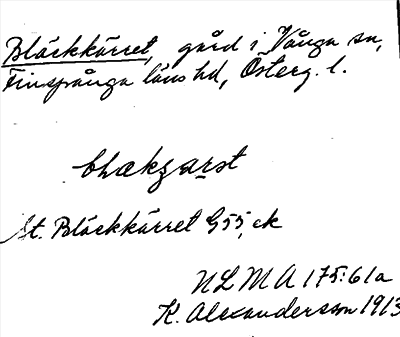 Bläckkärret, gård i Vånga sn,
Finspånga läns hd, Österg. l.
St. Bläckkärret G55, ek
NLMA 175:61a
K. Alexandersson 1913